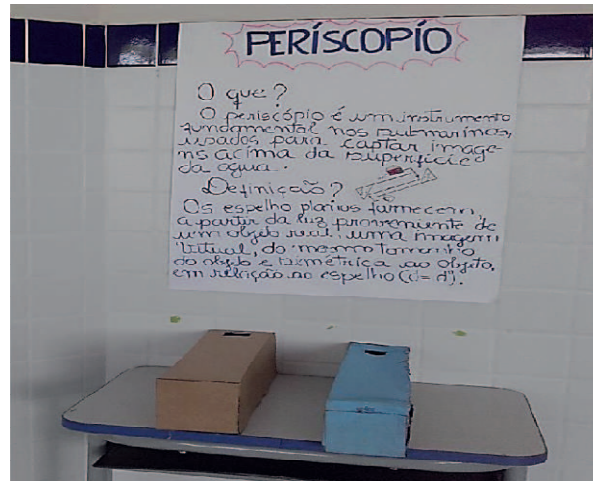 PERÍSCOPÍO
O que?
O periscópio é um instrumento
fundamental nos submarinos,
usados para captar image-
ns acima da superfície
da água.
Definição?
Os espelho planus furnecem,
a partir da luz proveniente de
um objeto real, uma imagem
virtual, do mesmo tamanho
do objeto e simétrica ao objeto,
em relação ao espelho (d=d').